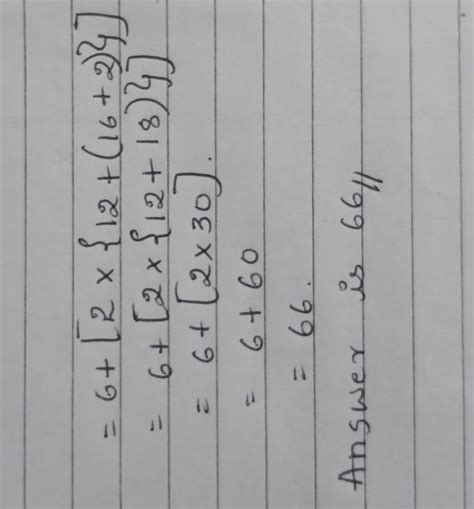 = 6+[2×{12+(16+2)}]
= 6+[2×{12+18)}]
= 6+[2×30].
= 6+60
= 66.
Answer is 66//